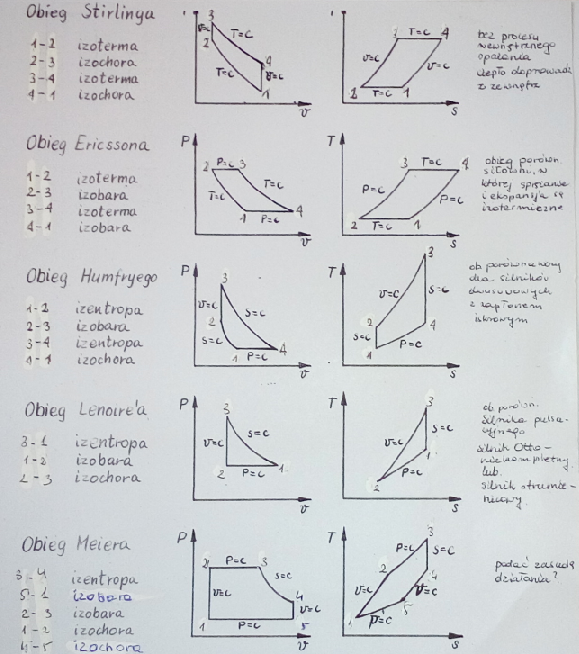 Obieg Stirlinga
1-2 izoterma
2-3 izochora
3-4 izoterma
4-1 izochora
3
T=c
v=c
2
4
v=c
T=c
1
v
3 T=c 4
v=c
v=c
2 T=c 1
s
bez procesu
wewnętrznego
spalania
ciepło doprowadz
z zewnątrz
Obieg Ericssona
1-2 izoterma
2-3 izobara
3-4 izoterma
4-1 izobara
P
2 P=c 3
T=c
T=c
1 P=c 4
v
T
3 T=c 4
P=c
P=c
2 T=c 1
s
obieg porówn.
siłowni, w
której sprężanie
i ekspansja są
izotermiczne
Obieg Humfryego
1-2 izentropa
2-3 izobara
3-4 izentropa
1-1 izochora
P
3
v=c
s=c
2
s=c
1 P=c 4
v
T
3
v=c
s=c
2
4
1 P=c
s
ob. porównawczy
dla silników
dwusuwowych
z zapłonem
iskrowym
Obieg Lenoire'a
3-1 izentropa
1-2 izobara
2-3 izochora
P
3
v=c
s=c
2 P=c 1
v
T
3
v=c
s=c
1
2 P=c
s
ob. porówn.
silnika pulsa-
cyjnego
silnik Otto-
niekompletny
lub
silnik strumie-
niowy.
Obieg Meiera
3-4 izentropa
5-1 izobara
2-3 izobara
1-2 izochora
4-5 izochora
P
2 P=c 3
s=c
v=c
4
v=c
1 P=c 5
v
T
3
P=c
s=c
2
4
v=c
v=c
5
1 P=c
s
podać zasadę
działania?